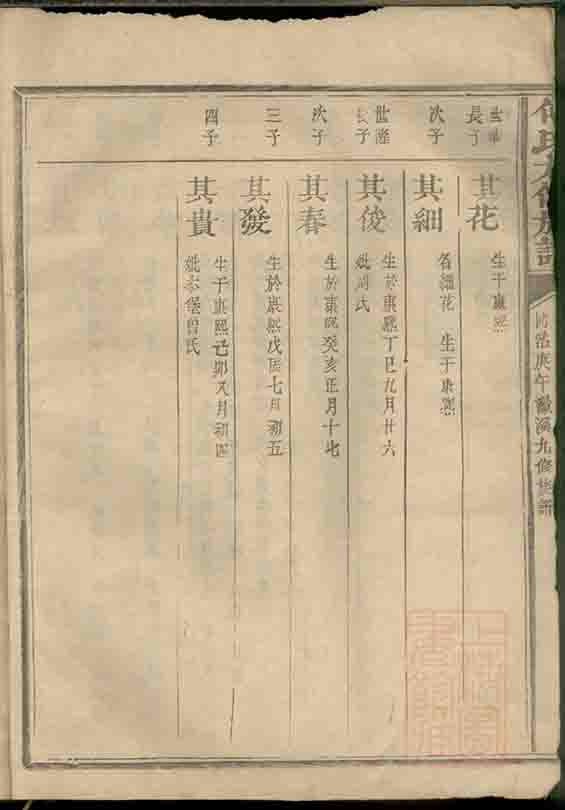 何氏九修族譜
同治庚午 九修族譜
長子
其花
生于康熙
次子
其細
名細花 生于康熙
世隆
長子
其俊
生於康熙丁巳九月廿六
妣周氏
次子
其春
生於康熙癸亥正月十七
三子
其發
生於康熙戊辰七月初五
四子
其貴
生于康熙己卯又月初四
曾氏